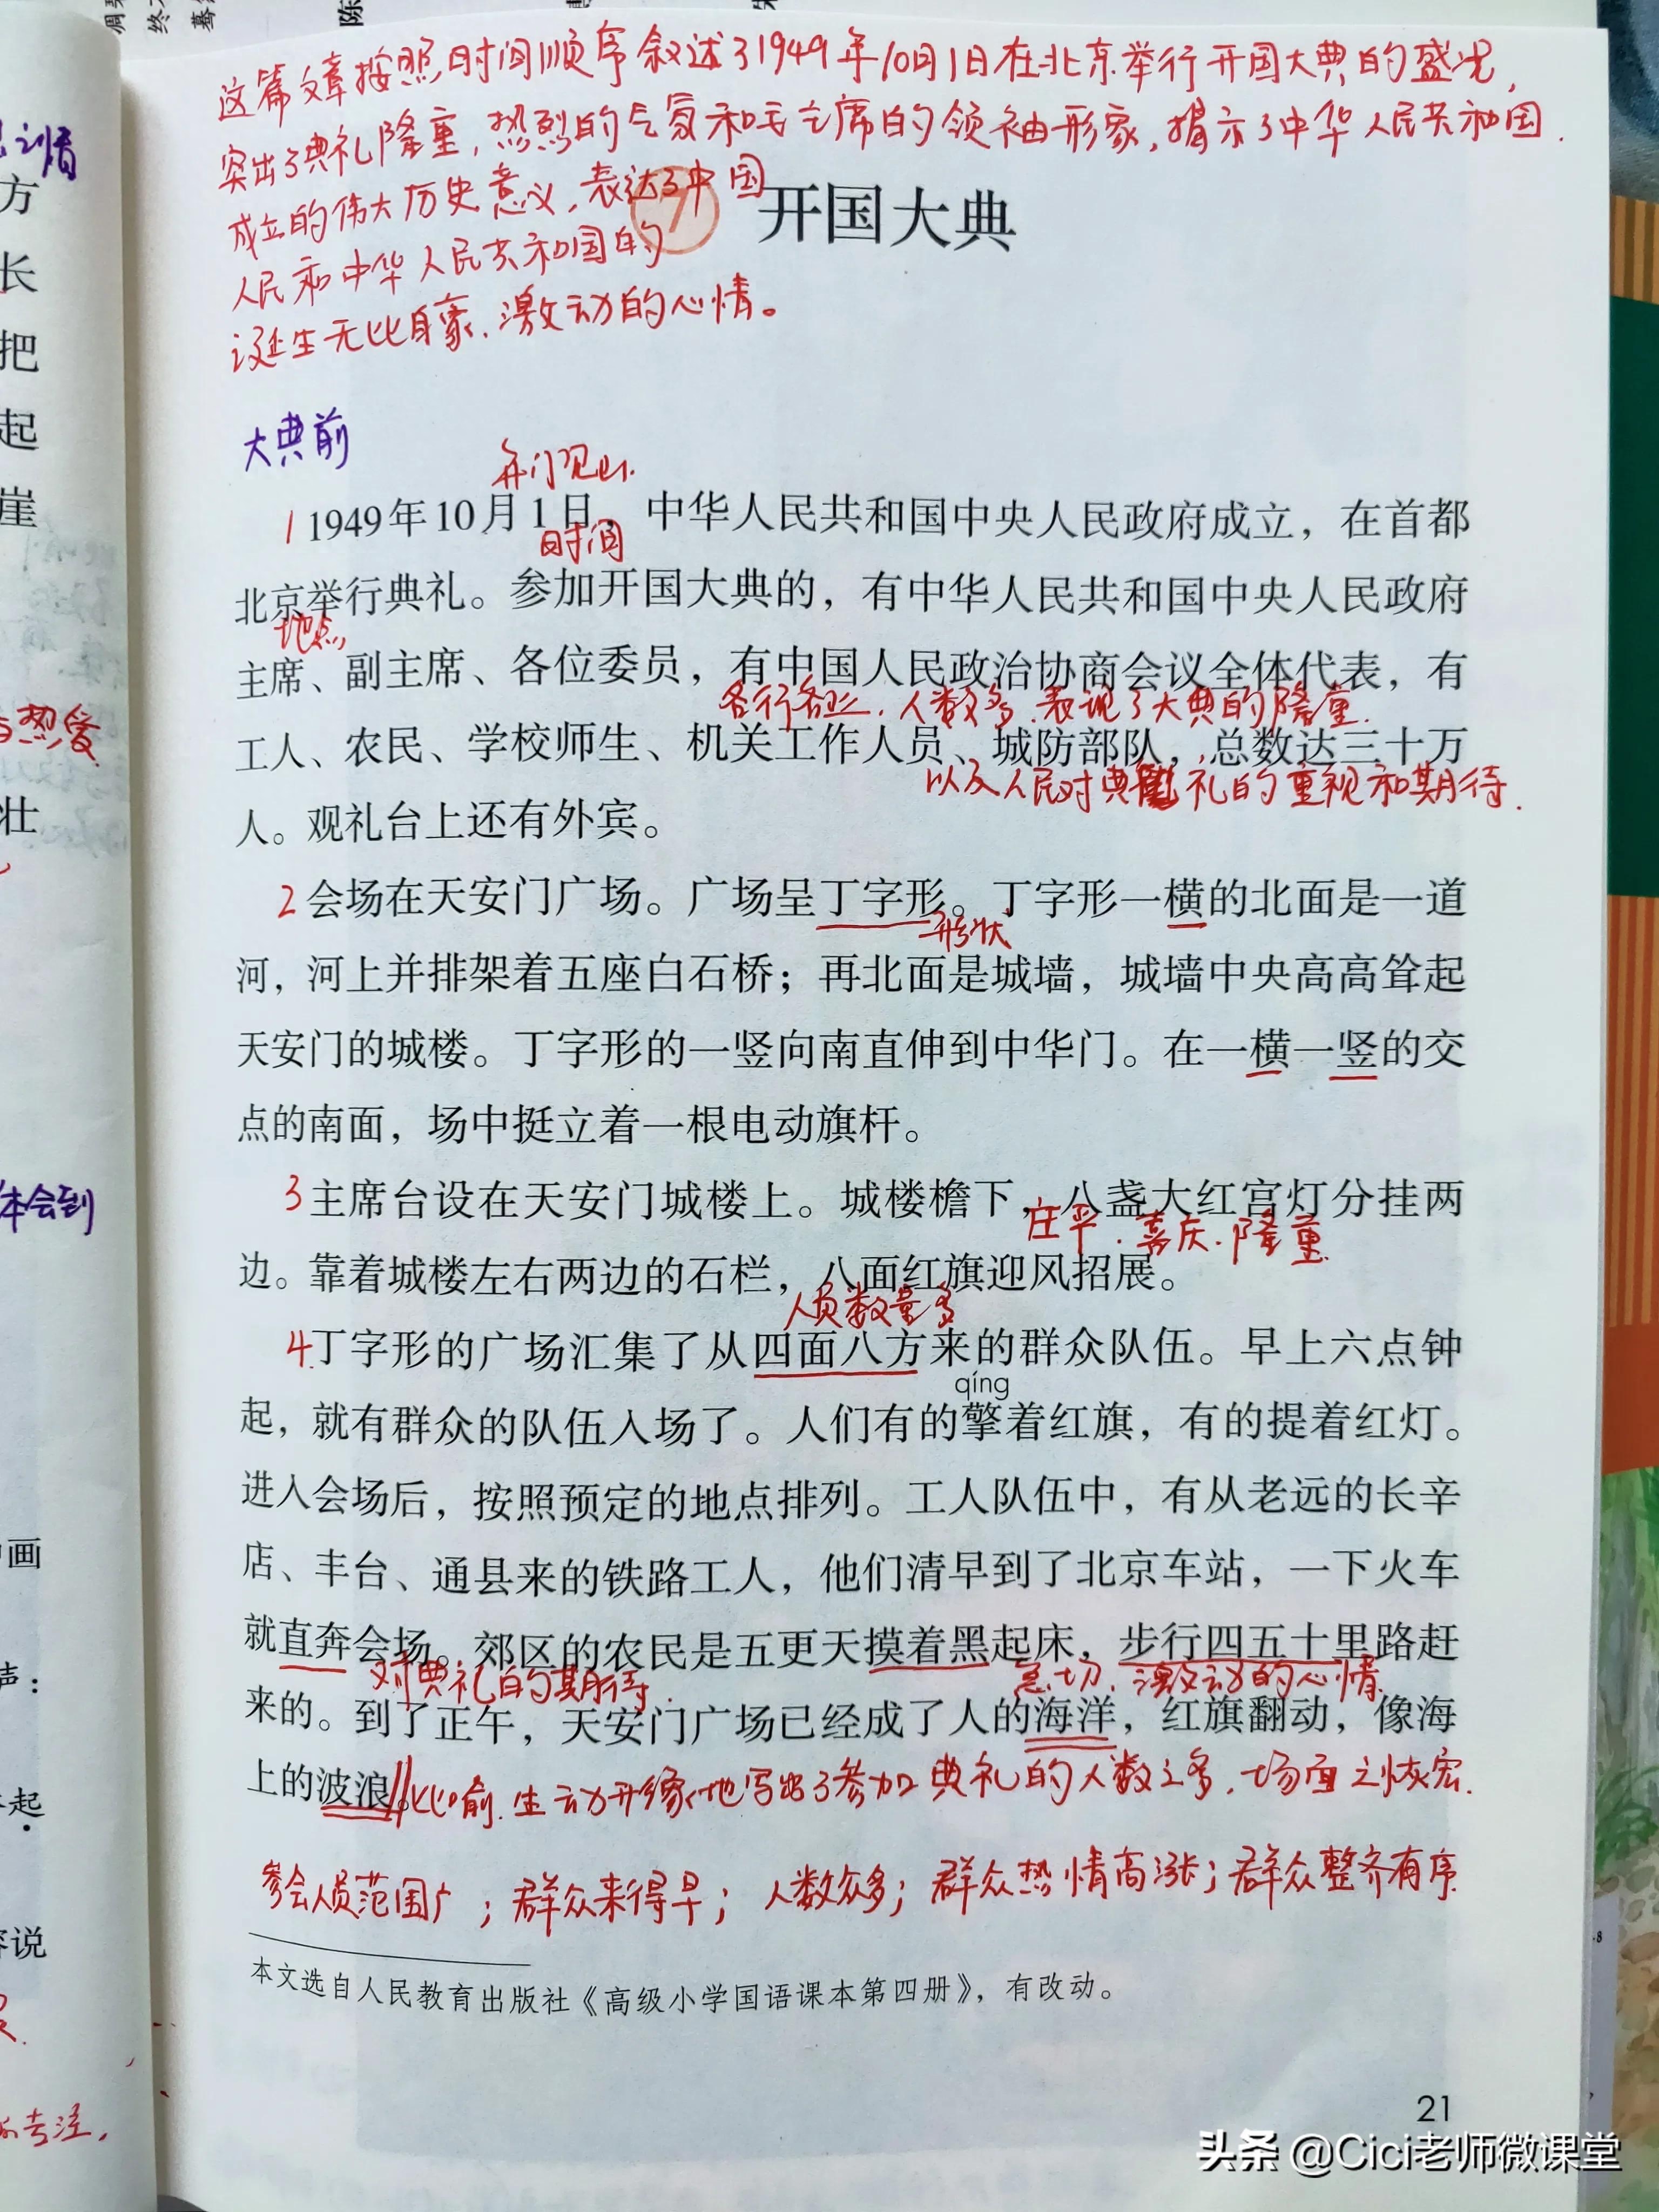 这篇文章按照时间顺序叙述了1949年10月1日在北京举行开国大典的盛况，
突出了典礼隆重，热烈的气氛和毛主席的领袖形象，揭示了中华人民共和国
成立的伟大历史意义，表达了中国
人民和中华人民共和国的
诞生无比自豪、激动的心情。
7 开国大典
大典前
开门见山.
1 1949年10月1日，中华人民共和国中央人民政府成立，在首都
时间
北京举行典礼。参加开国大典的，有中华人民共和国中央人民政府
地点
主席、副主席、各位委员，有中国人民政治协商会议全体代表，有
各行各业，人数多，表现了大典的隆重.
工人、农民、学校师生、机关工作人员、城防部队，总数达三十万
以及人民对典礼的重视和期待.
人。观礼台上还有外宾。
2 会场在天安门广场。广场呈丁字形。丁字形一横的北面是一道
形状
河，河上并排架着五座白石桥；再北面是城墙，城墙中央高高耸起
天安门的城楼。丁字形的一竖向南直伸到中华门。在一横一竖的交
点的南面，场中挺立着一根电动旗杆。
3 主席台设在天安门城楼上。城楼檐下，八盏大红宫灯分挂两
喜庆.隆重
边。靠着城楼左右两边的石栏，八面红旗迎风招展。
人员数量多
4.丁字形的广场汇集了从四面八方来的群众队伍。早上六点钟
qíng
起，就有群众的队伍入场了。人们有的擎着红旗，有的提着红灯。
进入会场后，按照预定的地点排列。工人队伍中，有从老远的长辛
店、丰台、通县来的铁路工人，他们清早到了北京车站，一下火车
就直奔会场。郊区的农民是五更天摸着黑起床，步行四五十里路赶
对典礼的期待.
急切，激动的心情.
来的。到了正午，天安门广场已经成了人的海洋，红旗翻动，像海
上的波浪。比喻.生动形象地写出了参加典礼的人数之多，场面之恢宏.
参会人员范围广；群众来得早；人数众多；群众热情高涨；群众整齐有序
本文选自人民教育出版社《高级小学国语课本第四册》，有改动。
21
头条 @Cici老师微课堂
方
长
把
起
崖
热爱
壮
体会到
画
声：
起
说
专注，